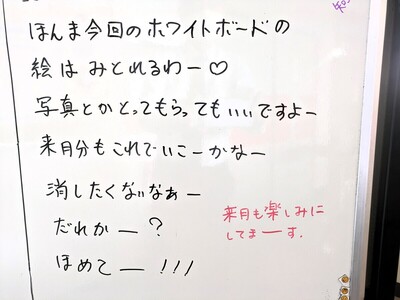 ほんま今回のホワイトボードの
絵は みとれるわー♡
写真とかとってもらってもいいですよー
来月分もこれでいこーかなー
消したくないなぁー
だれかー?
ほめてー!!!
来月も楽しみに
してまーす.